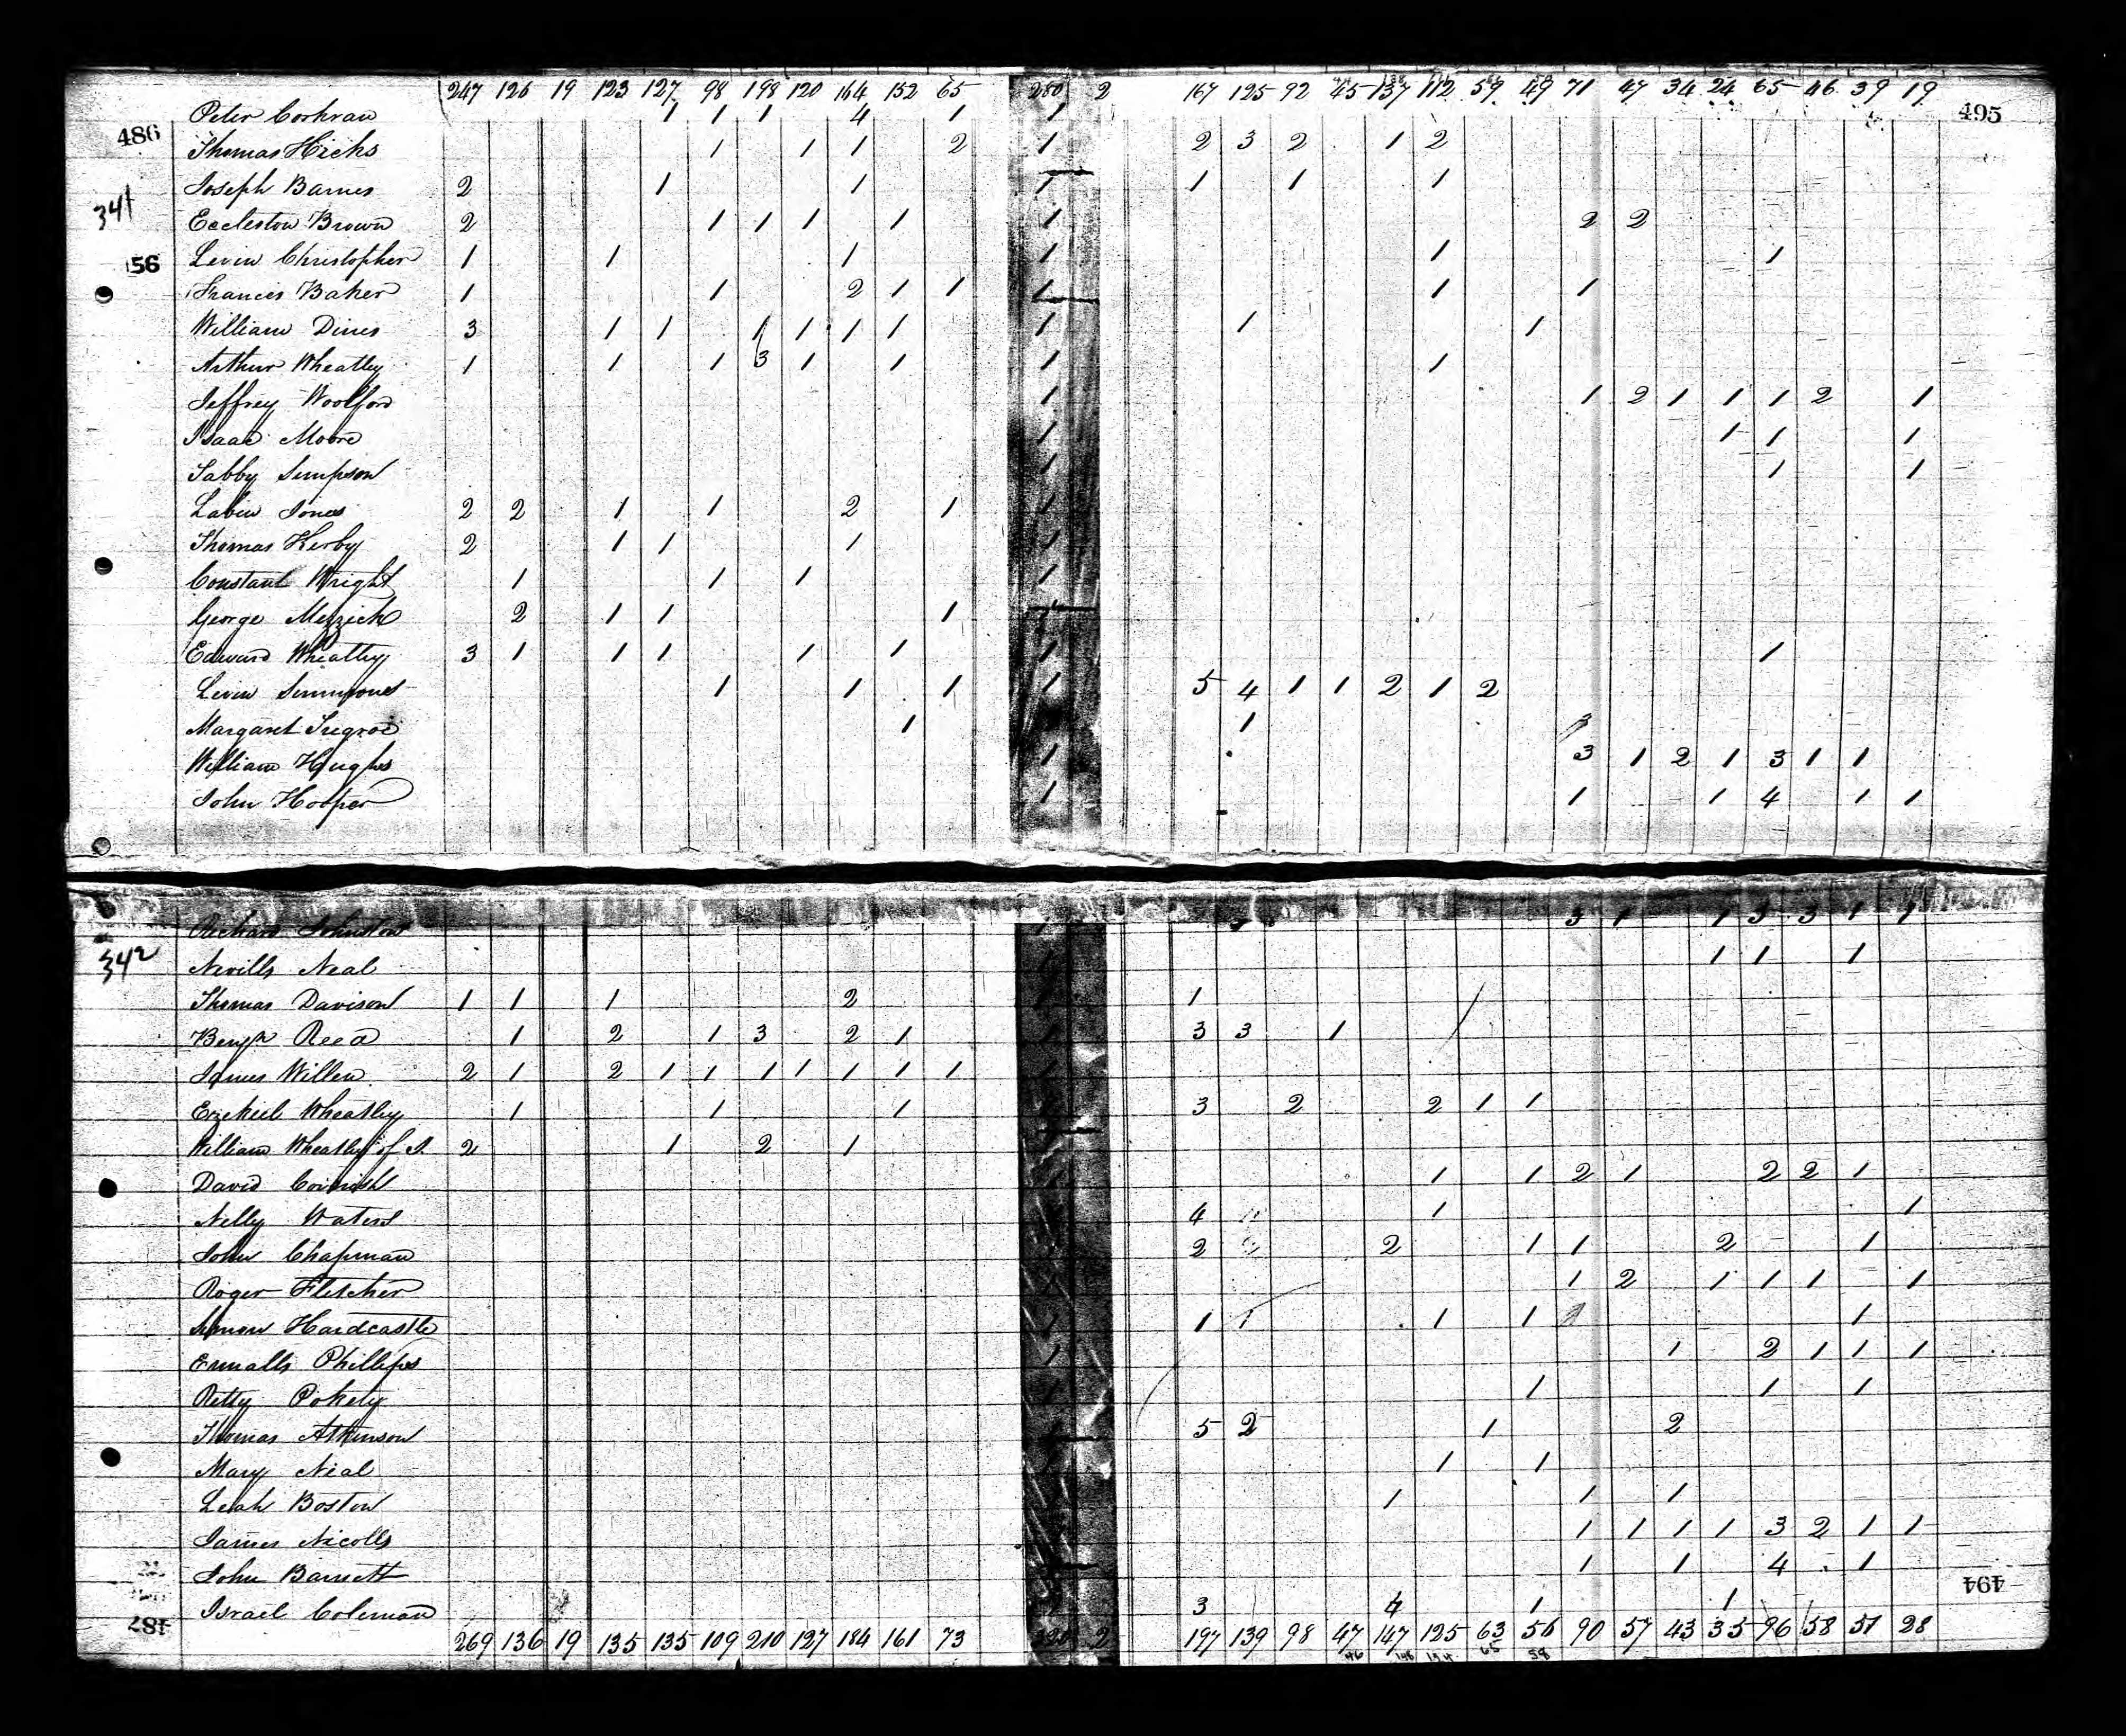 247 126 19 123 127 98 198 120 164 152 65 280 2 167 125 92 45 137 112 59 49 71 47 34 24 65 46 39 19
486 495
Peter Corkran 1 1 1 4 1 1
Thomas Hicks 1 1 1 2 1 2 3 2 1 2
Joseph Barnes 2 1 1 1 1 1 1
341
Eccleston Brown 2 1 1 1 1 1 2 2
56 Levin Christopher 1 1 1 1 1 1
Frances Baker 1 1 2 1 1 1 1 1
William Dines 3 1 1 1 1 1 1 1 1 1
Arthur Wheatley 1 1 1 3 1 1 1 1
Jeffrey Woolford 1 1 2 1 1 1 2 1
Isaac Moore 1 1 1 1
Sabby Simpson 1 1 1
Labin Jones 2 2 1 1 2 1 1
Thomas Kerby 2 1 1 1 1
Constant Wright 1 1 1 1
George 2 1 1 1 1
Edward Wheatley 3 1 1 1 1 1 1 1
Levin Simmons 1 1 1 1 5 4 1 1 2 1 2
Margaret 1 1
William Hughs 1 3 1 2 1 3 1 1
John Hooper 1 1 1 4 1 1
Richard Johnston 3 1 1 3 3 1 1
342
Nevills Neal 1 1 1
Thomas Davison 1 1 1 2 1 1
Benjn Reed 1 2 1 3 2 1 1 3 3 1
James Willen 2 1 2 1 1 1 1 1 1 1 1
Ezekiel Wheatley 1 1 1 3 2 2 1 1
William Wheatley of J. 2 1 2 1
David Cornish 1 1 1 2 1 2 2 1
Nelly Waters 4 1 1
John Chapman 2 2 1 1 2 1
Roger Fletcher 1 1 2 1 1 1 1
Simon Hardcastle 1 1 1 1 1 1
Ennalls Phillips 1 1 2 1 1 1
Betty Pokety 1 1 1 1
Thomas Atkinson 5 2 1 2
Mary Neal 1 1 1
Leah Boston 1 1 1
James Nicolls 1 1 1 1 3 2 1 1
John Barnett 1 1 4 1
494
Israel Coleman 3 4 1 1
487
269 136 19 135 135 109 210 127 184 161 73 2 197 139 98 47 147 125 63 56 90 57 43 35 96 58 51 28
46 148 124 65 58